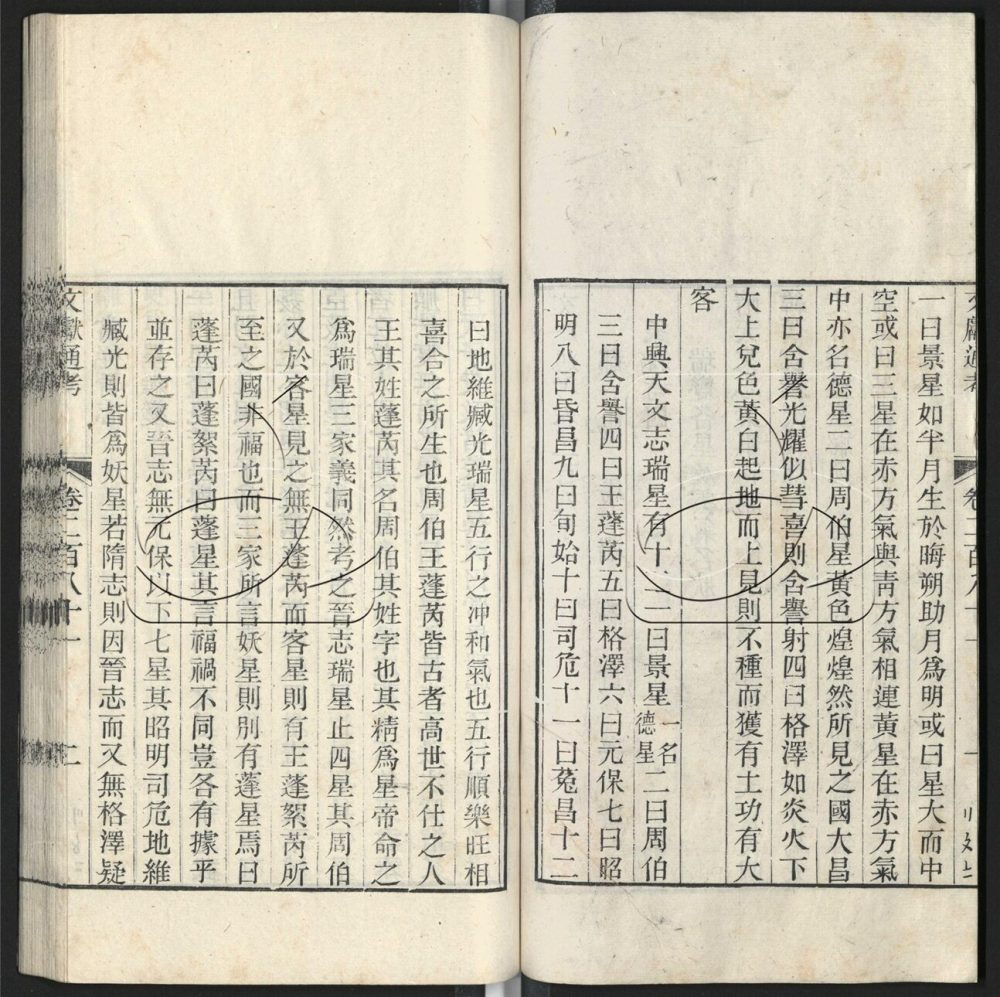 一曰景星如半月生於晦朔助月爲明或曰星大而中
空或曰三星在赤方氣與靑方氣相連黃星在赤方氣
中亦名德星二曰周伯星黃色煌煌然所見之國大昌
三曰含譽光耀似彗喜則含譽射四曰格澤如炎火下
大上兌色黃白起地而上見則不種而獲有土功有大
客
中興天文志瑞星有十二一曰景星一名德星二曰周伯
三曰含譽四曰王蓬芮五曰格澤六曰元保七曰昭
明八曰昏昌九曰旬始十曰司危十一曰菟昌十二
曰地維臧光瑞星五行之冲和氣也五行順樂旺相
喜合之所生也周伯王蓬芮皆古者高世不仕之人
王其姓蓬芮其名周伯其姓字也其精爲星帝命之
爲瑞星三家義同然考之晉志瑞星止四星其周伯
又於客星見之無王蓬芮而客星則有王蓬絮芮所
至之國非福也而三家所言妖星則別有蓬星焉曰
蓬芮曰蓬絮芮曰蓬星其言福禍不同豈各有據乎
並存之又晉志無元保以下七星其昭明司危地維
臧光則皆爲妖星若隋志則因晉志而又無格澤疑
文獻通考 卷二百八十一 二